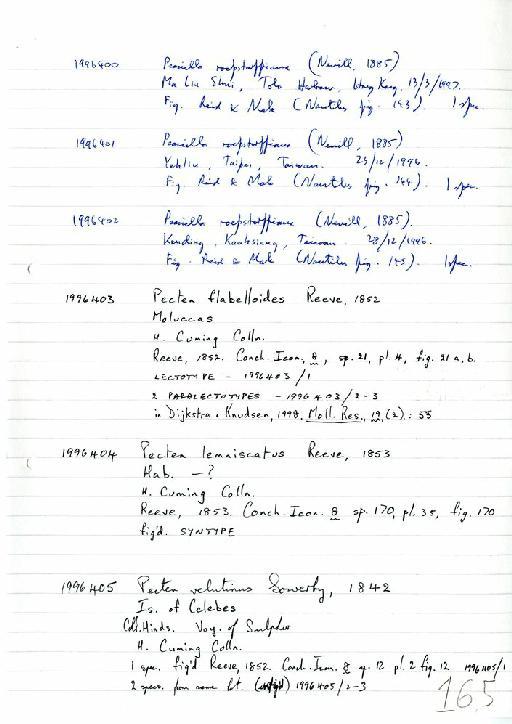 1996400 Peasiella roepstorffiana (Nevill, 1885)
Ma Liu Shui, Tolo Harbour, Hong Kong, 13/3/1997.
Fig. Reid & Mak (Nautilus fig. 143). 1 spec.
1996401 Peasiella roepstorffiana (Nevill, 1885)
Yehliu, Taipei, Taiwan. 25/12/1996.
Fig. Reid & Mak (Nautilus fig. 144). 1 spec.
1996402 Peasiella roepstorffiana (Nevill, 1885).
Kending, Kaohsiung, Taiwan. 28/12/1996.
Fig. Reid & Mak (Nautilus fig. 145). 1 spec.
1996403 Pecten flabelloides Reeve, 1852
Moluccas
H. Cuming Colln.
Reeve, 1852. Conch. Icon., 8, sp. 21, pl. 4, fig. 21 a, b.
LECTOTYPE - 1996403/1
2 PARALECTOTYPES - 1996403/2-3
in Dijkstra & Knudsen, 1998. Moll. Res., 19, (2): 55
1996404 Pecten lemniscatus Reeve, 1853
Hab. - ?
H. Cuming Colln.
Reeve, 1853 Conch. Icon. 8 sp. 170, pl. 35, fig. 170
fig'd. SYNTYPE
1996405 Pecten velutinus Sowerby, 1842
Is. of Celebes
Coll. Hinds. Voy. of Sulphur
H. Cuming Colln.
1 spec. fig'd Reeve, 1852. Conch. Icon. 8 sp. 12 pl. 2 fig. 12 1996405/1
2 specs. from same lot 1996405/2-3
165